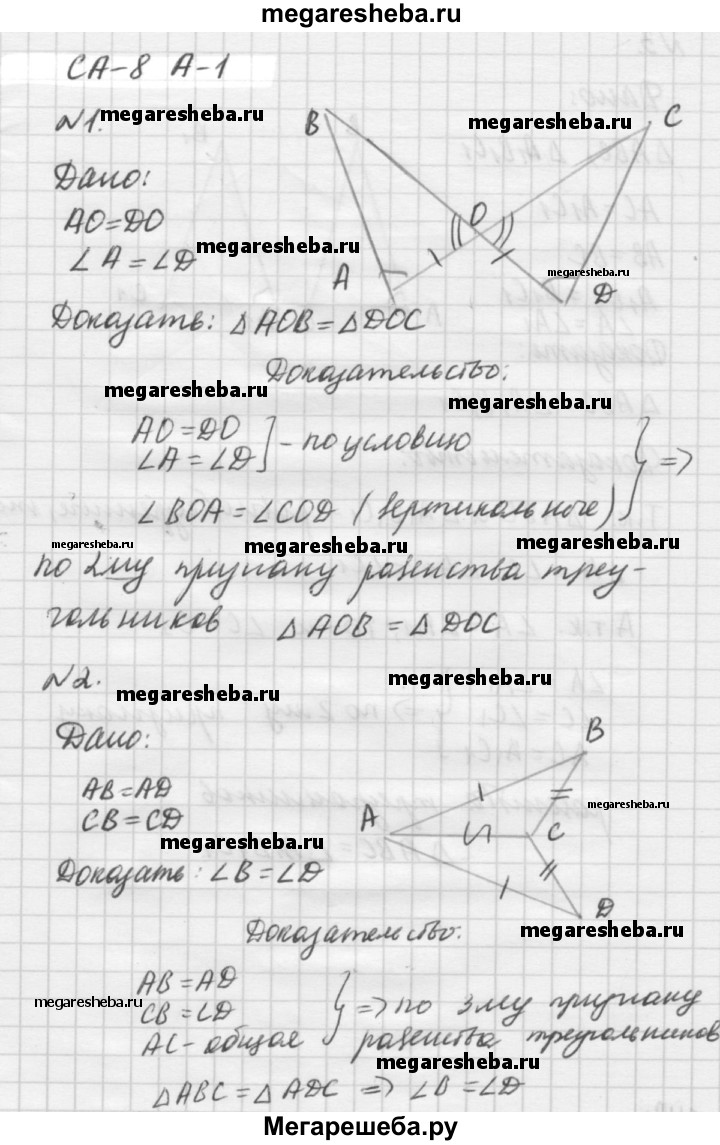 megaresheba.ru
СА-8 А-1
№1. megaresheba.ru
megaresheba.ru
B
C
Дано:
AO=DO
O
∠A=∠D
megaresheba.ru
megaresheba.ru
A
D
Доказать: △AOB=△DOC
Доказательство:
megaresheba.ru
megaresheba.ru
AO=DO
∠A=∠D ] - по условию
} =>
∠BOA=∠COD (вертикальные)
megaresheba.ru
megaresheba.ru
megaresheba.ru
по 2му признаку равенства треу-
гольников △AOB=△DOC
№2.
megaresheba.ru
megaresheba.ru
Дано:
B
AB=AD
CB=CD
megaresheba.ru
megaresheba.ru
A
C
D
Доказать: ∠B=∠D
Доказательство:
megaresheba.ru
AB=AD
CB=CD
AC-общая
} => по 3му признаку
равенства треугольников
megaresheba.ru
megaresheba.ru
△ABC=△ADC => ∠B=∠D
Мегарешеба.ру